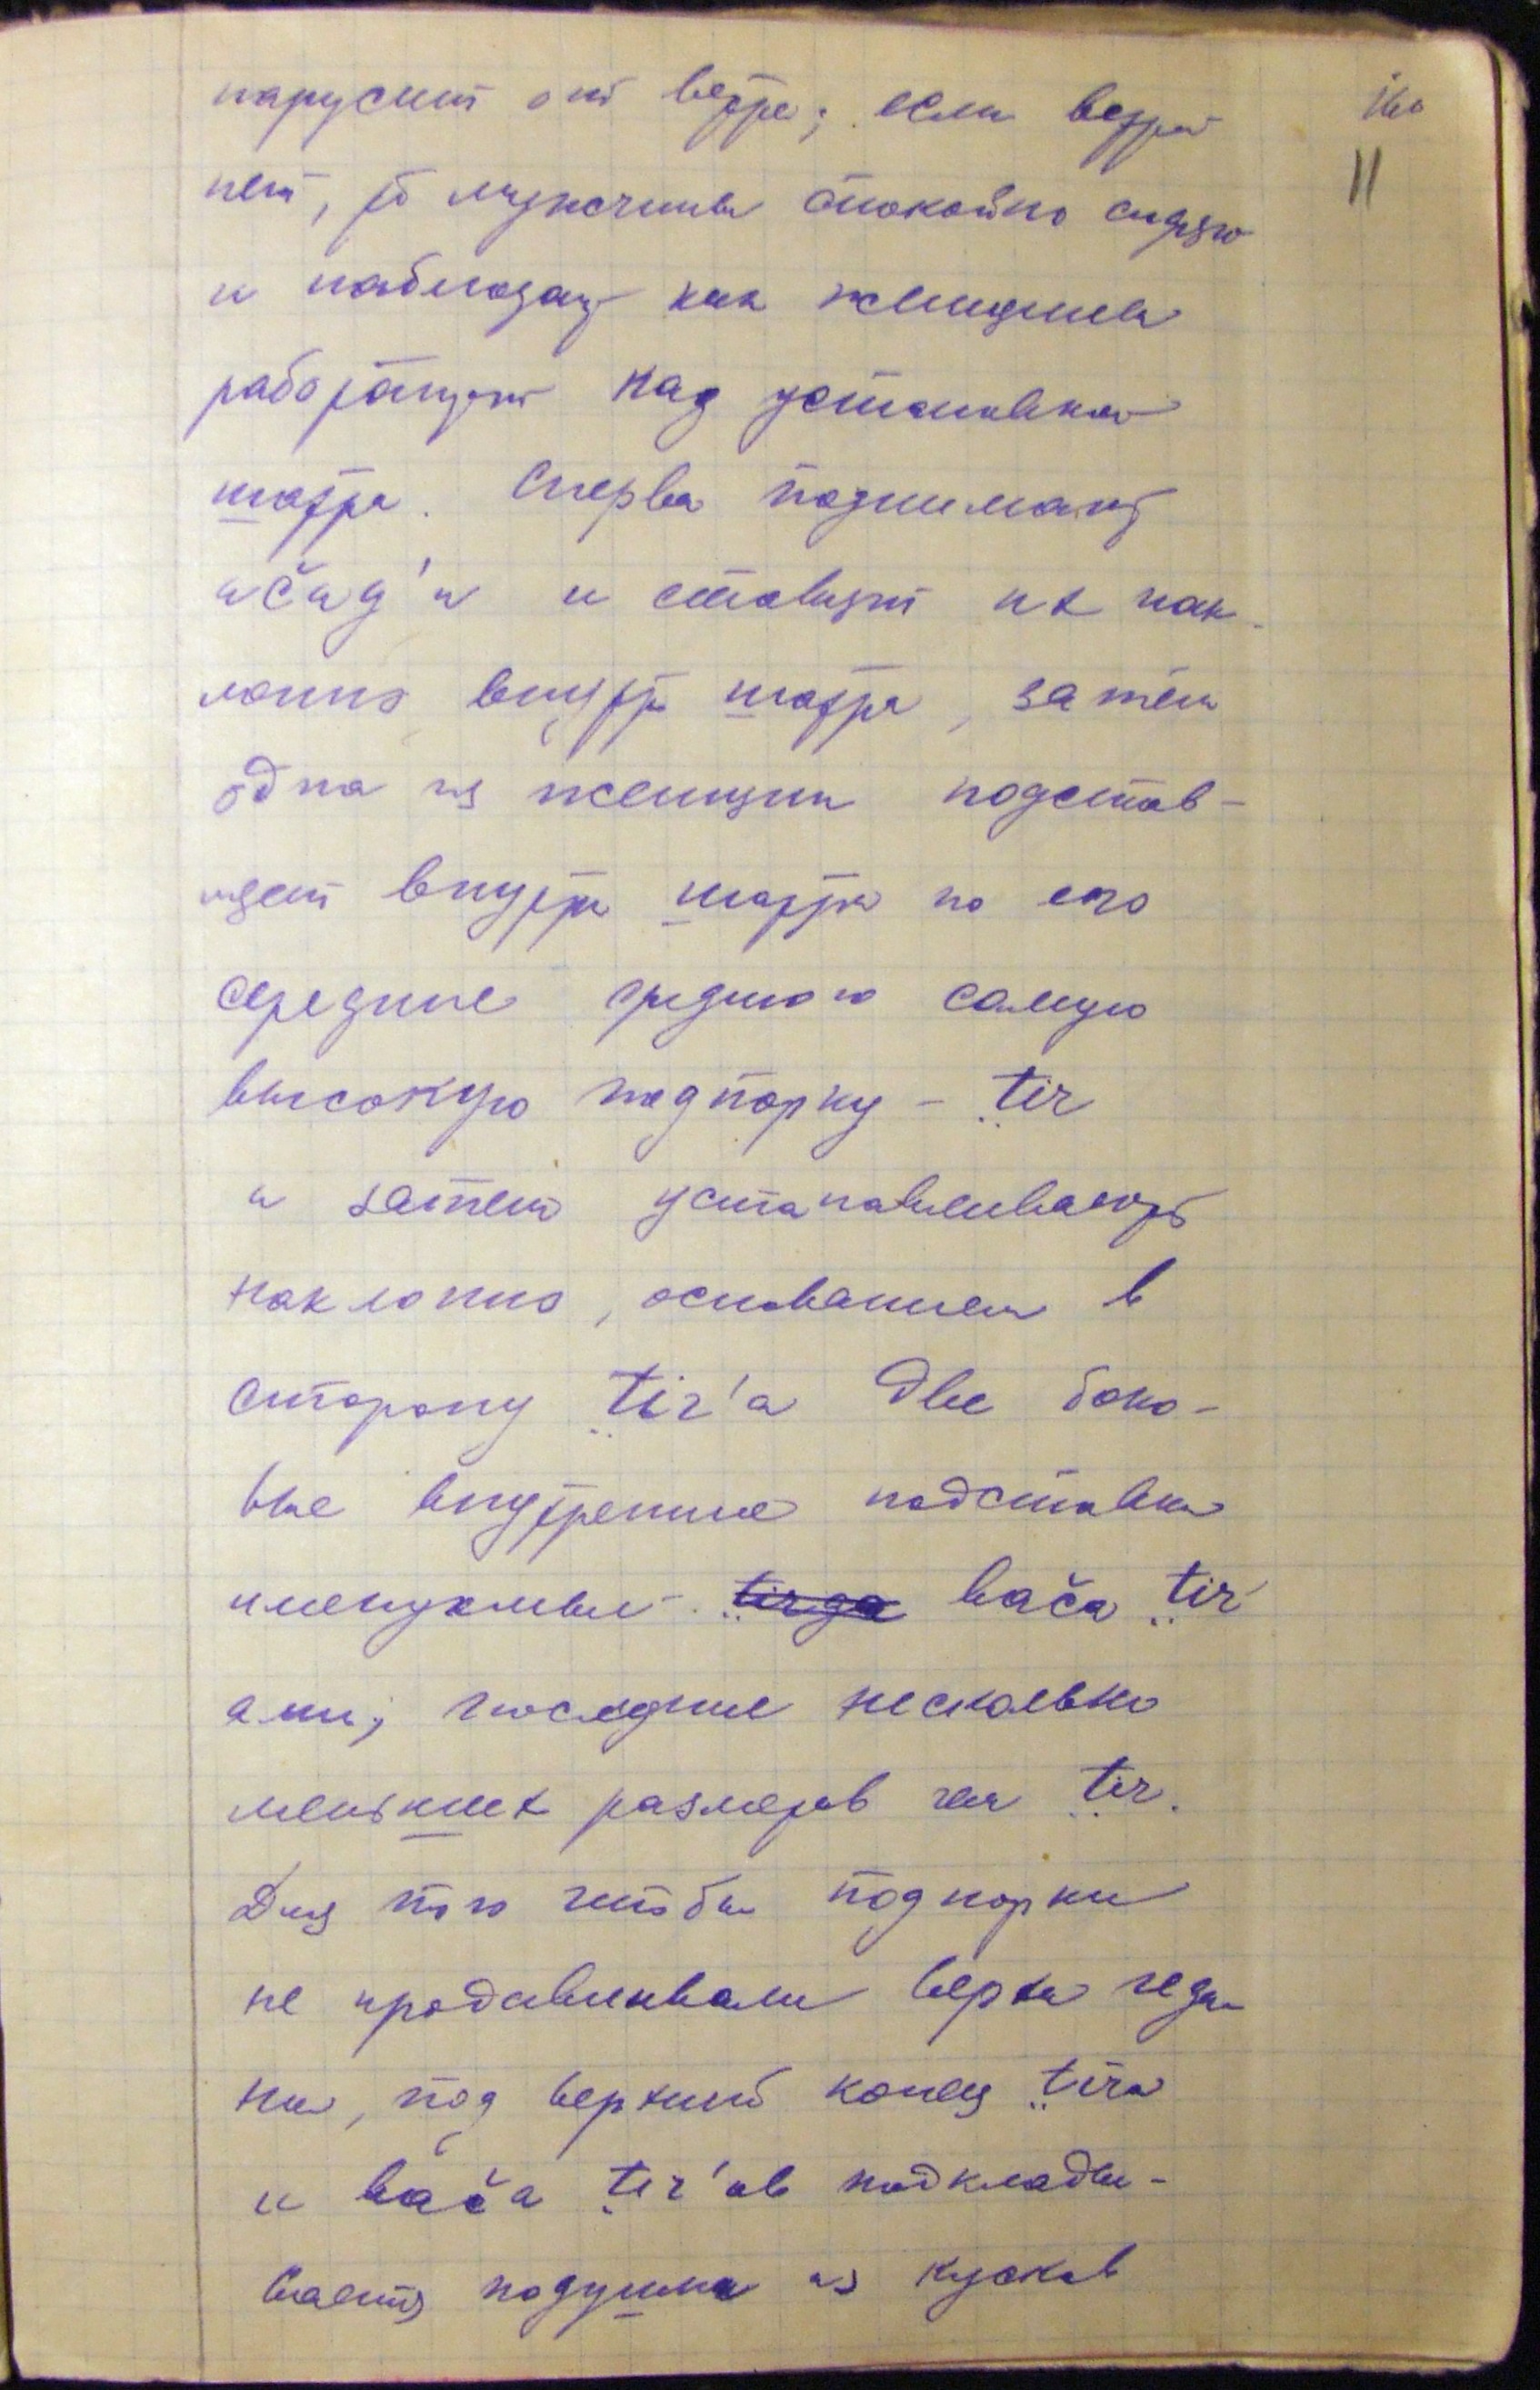 парусит от ветра; если ветра
11
нет, то мужчины спокойно сидят
и наблюдают как женщины
работают над установкой
шатра. Сперва поднимают
и ставят их нак-
лонно внутри шатра, затем
одна из женщин подстав-
ляет внутри шатра по его
середине самую
высокую подпорку - tir
и затем устанавливают
наклонно, основанием в
сторону tir'a две боко-
вые внутренние подставки
именуемые tirga вača tir
ами; последние несколько
меньших размеров чем tir.
Для того чтобы подпорки
не продавливали верха
ни, под верхний конец tira
и вača tir'ов подклады-
вается подушка из кусков